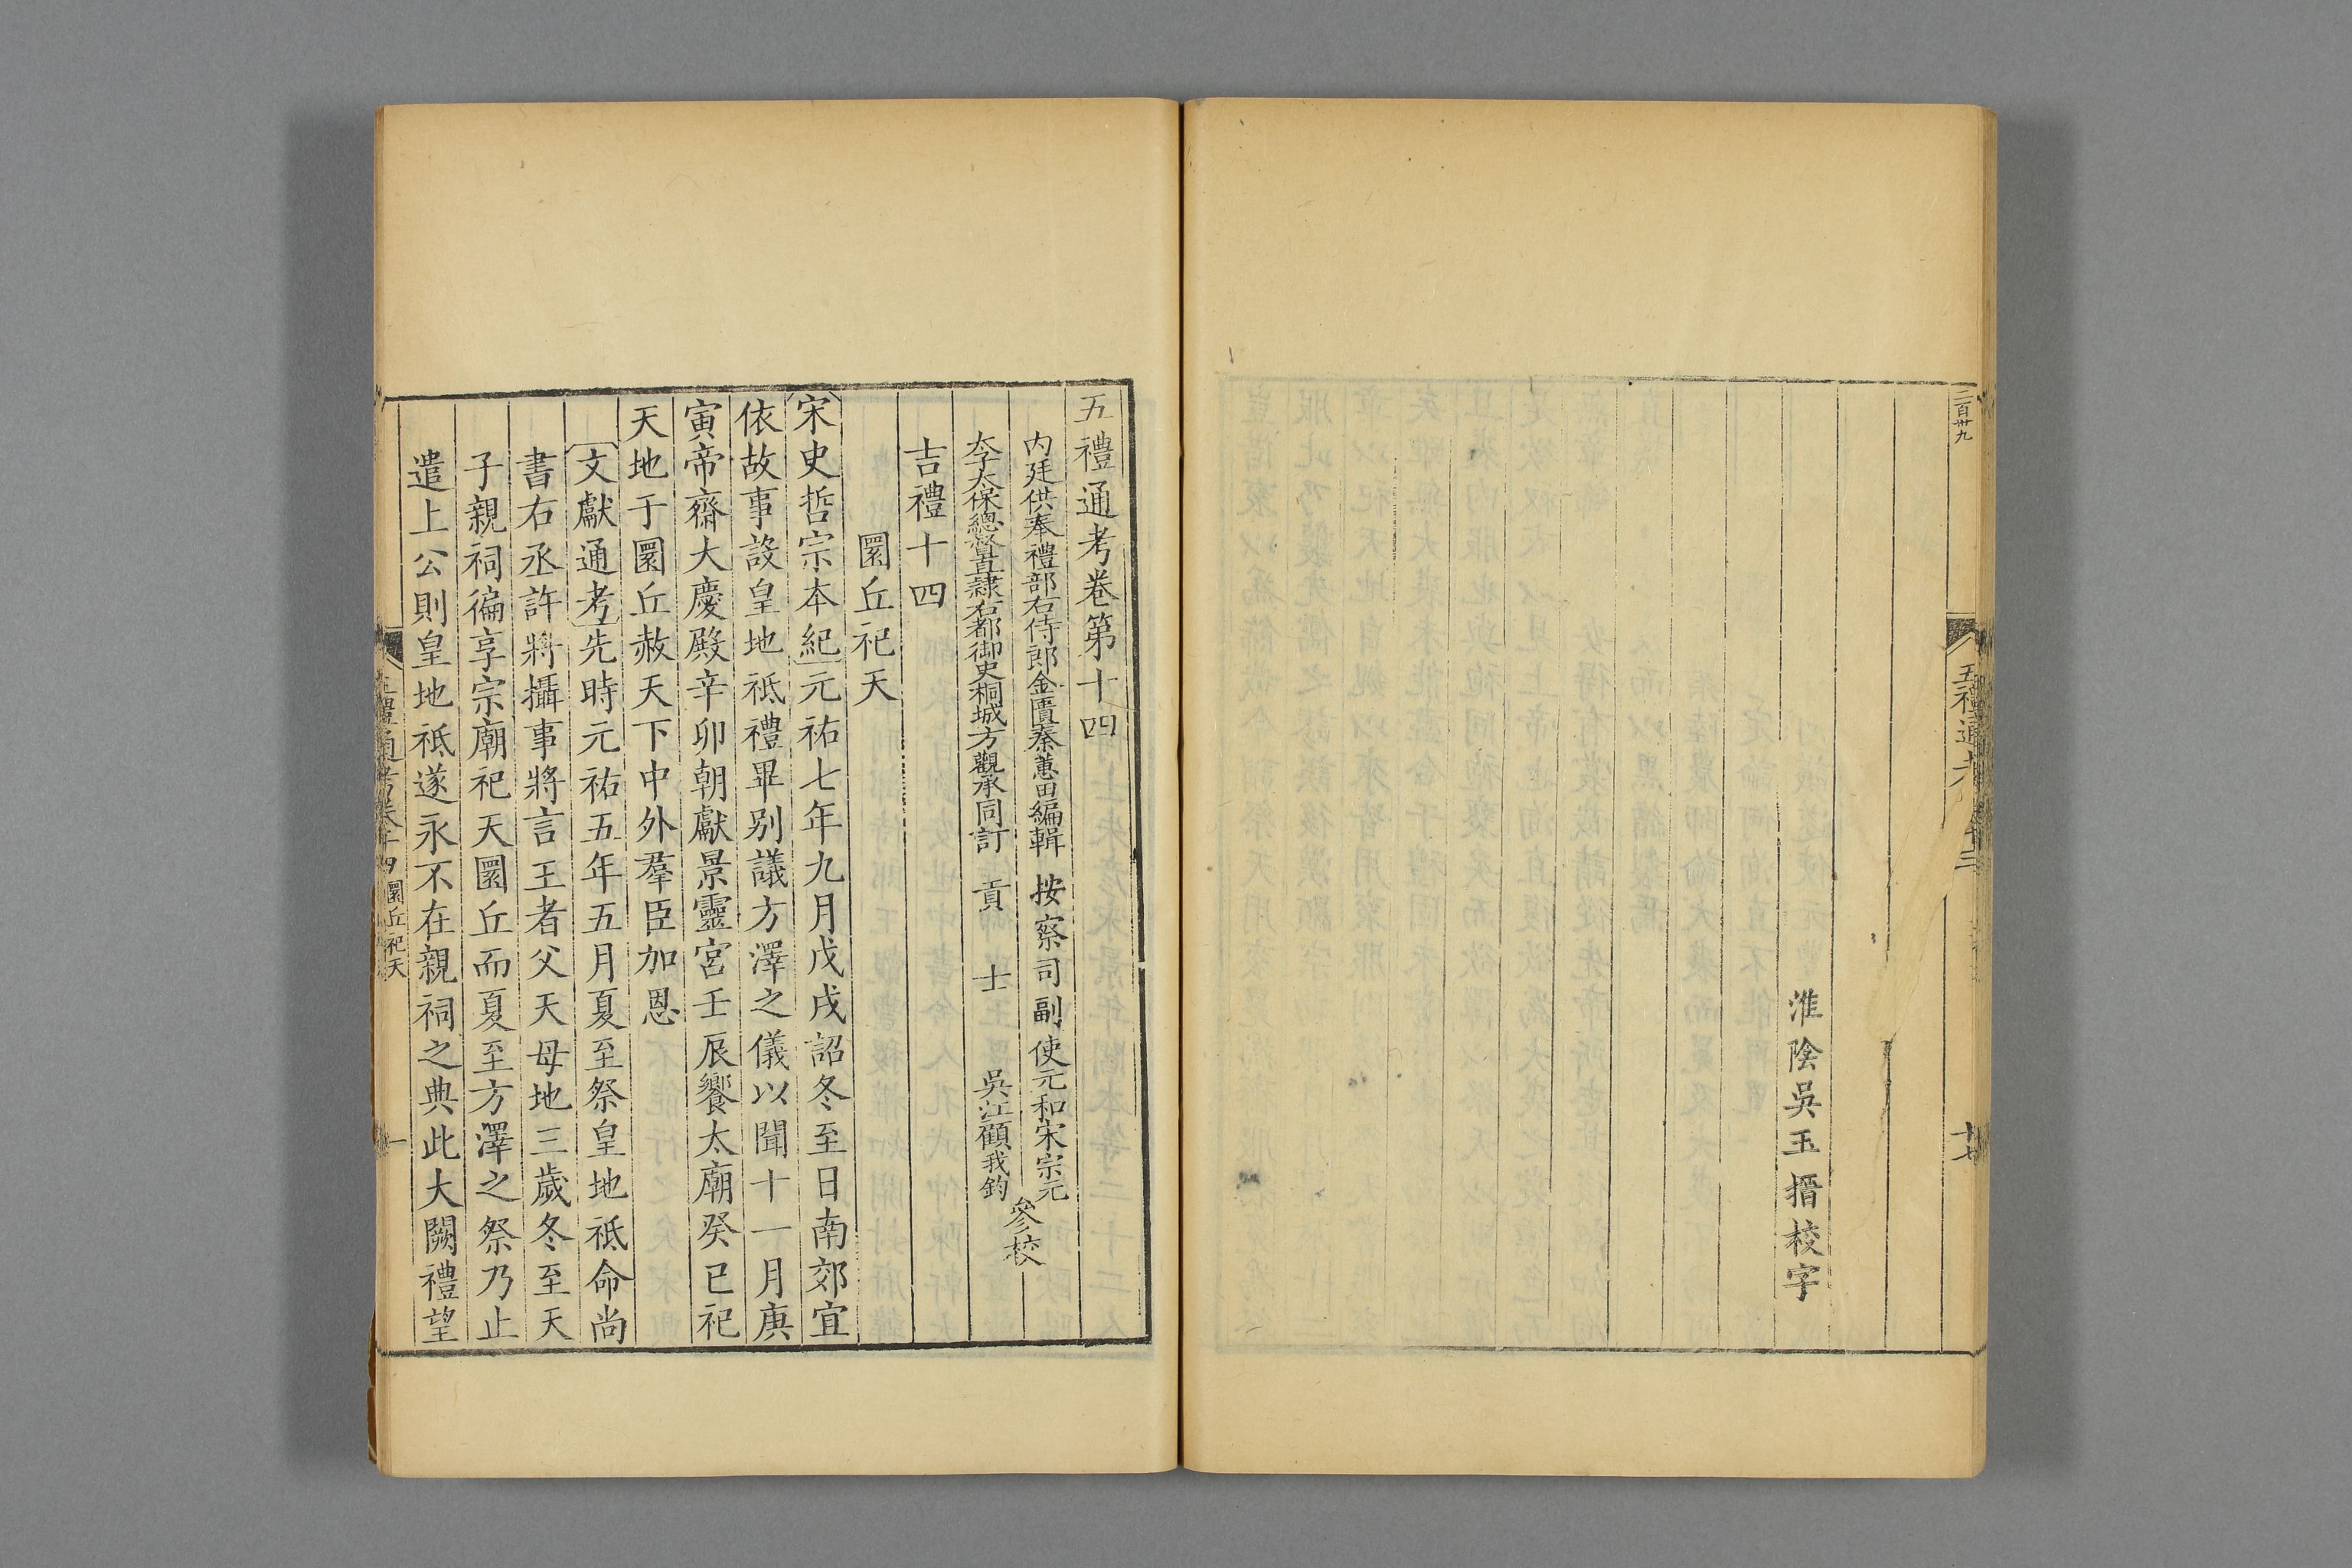 二百卅九
五禮通考
淮陰吳玉搢校字
五禮通考卷第十四
內廷供奉禮部右侍郎金匱秦蕙田編輯　按察司副使元和宋宗元
太子太保總督直隸右都御史桐城方觀承同訂　貢士吳江顧我鈞
參校
吉禮十四
圜丘祀天
宋史哲宗本紀元祐七年九月戊戌詔冬至日南郊宜
依故事設皇地祗禮畢別議方澤之儀以聞十一月庚
寅帝齋大慶殿辛卯朝獻景靈宮壬辰饗太廟癸巳祀
天地于圜丘赦天下中外羣臣加恩
文獻通考先時元祐五年五月夏至祭皇地祗命尚
書右丞許將攝事將言王者父天母地三歲冬至天
子親祠徧享宗廟祀天圜丘而夏至方澤之祭乃止
遣上公則皇地祗遂永不在親祠之典此大闕禮望
五禮通考卷十四 圜丘祀天
一